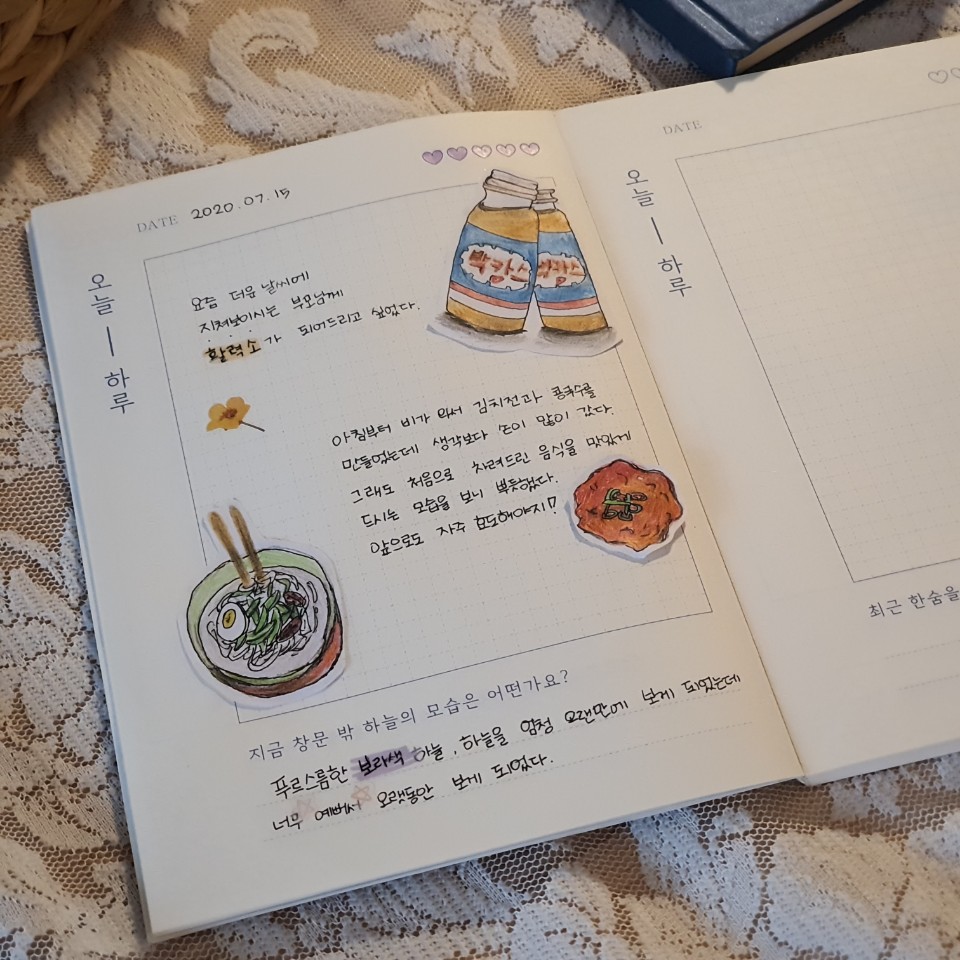 DATE 2020.07.15
오늘 — 하루
박카스
박카스
요즘 더운 날씨에
지쳐보이시는 부모님께
활력소가 되어드리고 싶었다.
아침부터 비가 와서 김치전과 콩국수를
만들었는데 생각보다 손이 많이 갔다.
그래도 처음으로 차려드린 음식을 맛있게
드시는 모습을 보니 뿌듯했다.
앞으로도 자주 효도해야지!
지금 창문 밖 하늘의 모습은 어떤가요?
푸르스름한 보라색 하늘, 하늘을 엄청 오랜만에 보게 되었는데
너무 예뻐서 오랫동안 보게 되었다.
DATE
오늘 — 하루
최근 한숨을